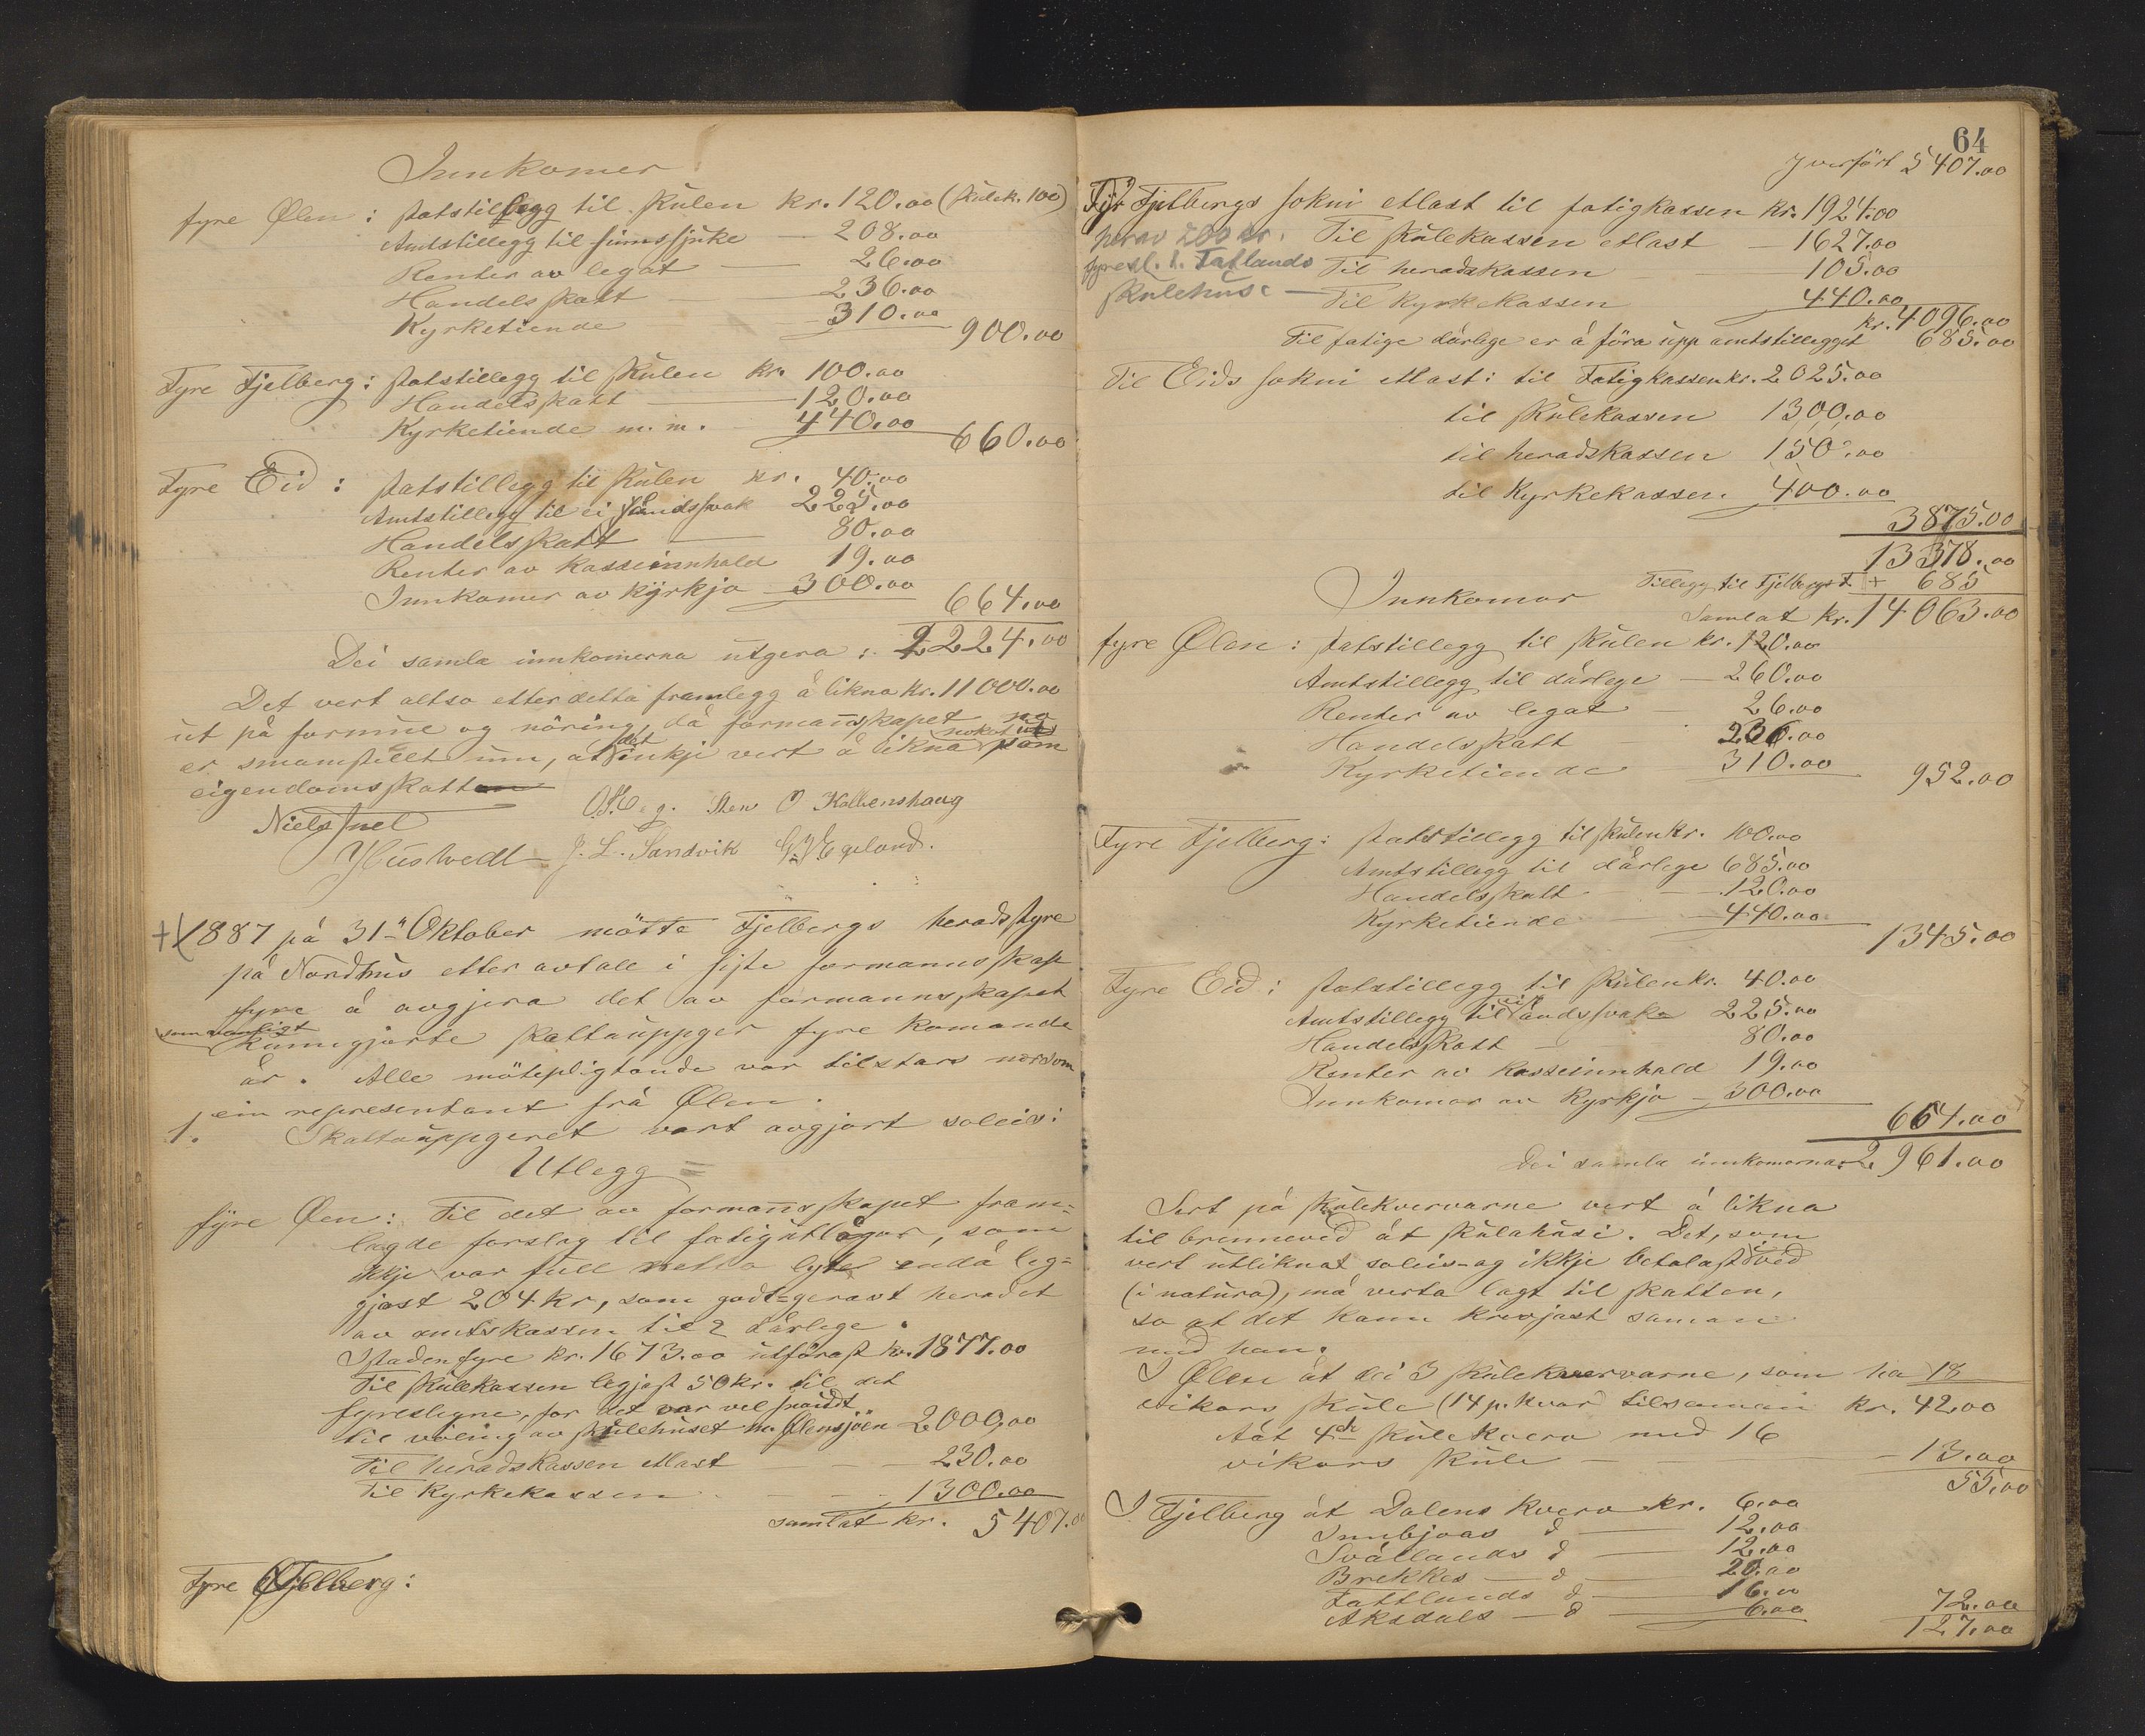 Innkomer
fyre Ølen: statstillegg til skulen kr. 120.00 (skulek. 100)
Amtstillegg til sinnssjuke — 208.00
Renter av legat — 26.00
Handelsskatt — 236.00
Kyrketiende — 310.00
900.00
Fyre Fjelberg: statstillegg til skulen kr. 100.00
Handelsskatt — 120.00
Kyrketiende m.m. 440.00
660.00
Fyre Eid: statstillegg til skulen kr. 40.00
Amtstillegg til ei åndssvak 225.00
Handelsskatt — 80.00
Renter av kasseinnhald 19.00
Innkomer av kyrkja 300.00
664.00
Dei samla innkomerna utgera: 2224.00
Det vert altso etter detta framlegg å likna kr. 11000.00
ut på formue og näring, då formannskapet no
er smamstillt um, at det inkje vert å likna noko ut som
eigendomsskatt
Niels Juel O. Kallenshaug
Hustvedt J. L. Sandvik Egeland.
+ 1887 på 31te Oktober mötte Fjelbergs heradsstyre
på Nordhus etter avtale i siste formannsskap
fyre å avgjera det av formannsskapet
som vanligt kunngjorte skattauppger fyre komande
år. Alle mötepligtande var tilstars norsom
ein representant frå Ølen.
1. Skattauppgeret vart avgjort soleis:
Utlegg
fyre Ølen: Til det av formannsskapet fram=
lagde forslag til fatigutlågur, som
ikkje var full netto lyt endå leg=
gjast 204 kr, som godt=gerast heradet
av amtskassen til 2 dårlege.
Istaden fyre kr. 1673.00 utförast kr. 1877.00
Til skulekassen legjast 50 kr. til det
fyreslegne, for det var vel snaudt
til völing av skulehuset ne. Ølensjöen 2000,00
Til heradskassen etlast — 230.00
Til Kyrkekassen — 1300.00
samlat kr. 5407.00
Fyre Fjelberg:
64
Yverfört 5407.00
Fyr Fjelbergs sokni etlast til fatigkassen kr. 1924.00
herav 200 kr. Til skulekassen etlast — 1627.00
fyresl. t. Tatlands Til heradskassen 105.00
skulehus — Til Kyrkekassen 440.00
kr. 4096.00
Til fatige dårlege er å föra upp amtstillegget 685.00
Til Eids sokni etlast: til Fatigkassen kr. 2025.00
til skulekassen 1300.00
til heradskassen 150.00
til Kyrkekassen 400.00
3875.00
13378.00
Tillegg til Fjelbergs f. + 685
Innkomar
Samlat kr. 14063.00
fyre Ølen: statstillegg til skulen kr. 120.00
Amtstillegg til dårlege — 260.00
Renter av legat — 26.00
Handelsskatt — 236.00
Kyrketiende — 310.00
952.00
Fyre Fjelberg: statstillegg til skulen kr. 100.00
Amtstillegg til dårlege 685.00
Handelsskatt — 120.00
Kyrketiende — 440.00
1345.00
Fyre Eid: statstillegg til skulen kr. 40.00
Amtstillegg til åndssvake 225.00
Handelsskatt — 80.00
Renter av kasseinnhald 19.00
Innkomar av Kyrkja — 300.00
664.00
Dei samla innkomarna: 2961.00
Sert på skulekvervarne vert å likna
til brennevid åt skulahusi. Det, som
vert utliknat soleis og ikkje betalast i ved
(i natura), må verta lagt til skatten,
so at det kann krevjast saman
med han.
I Ølen åt dei 3 skulekvervarne, som ha 18
vikors skule (14 p. kvar) tilsaman kr. 42.00
Aåt 4de skulekverv med 16
vikors skule — 13.00
55.00
I Fjelberg åt Dalens kverv kr. 6.00
Innbjoas d — 12.00
Svållands d — 12.00
Brekkes — d — 20.00
Tattlands d — 16.00
Aksdals — d — 6.00
72.00
127.00